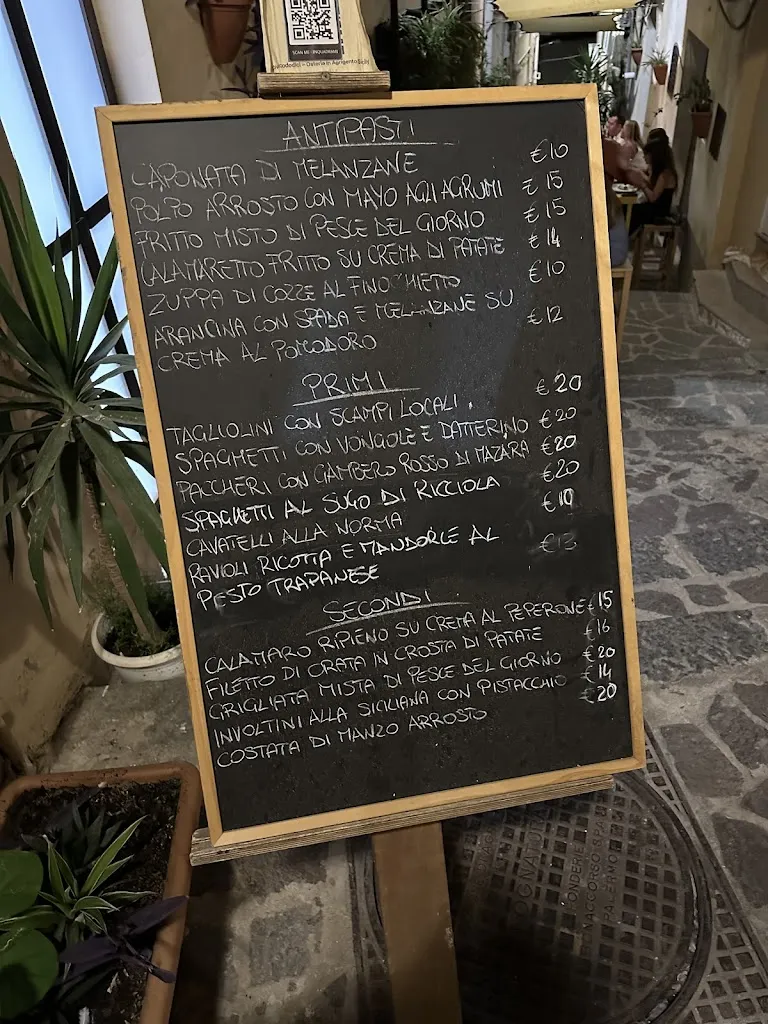 SCAN ME - INQUADRAMI
Osteria in Agrigento
ANTIPASTI
CAPONATA DI MELANZANE €10
POLPO ARROSTO CON MAYO AGLI AGRUMI €15
FRITTO MISTO DI PESCE DEL GIORNO €15
CALAMARETTO FRITTO SU CREMA DI PATATE €14
ZUPPA DI COZZE AL FINOCCHIETTO €10
ARANCINA CON SPADA E MELANZANE SU €12
CREMA AL POMODORO
PRIMI
TAGLIOLINI CON SCAMPI LOCALI €20
SPAGHETTI CON VONGOLE E DATTERINO €20
PACCHERI CON GAMBERO ROSSO DI MAZARA €20
SPAGHETTI AL SUGO DI RICCIOLA €20
CAVATELLI ALLA NORMA
RAVIOLI RICOTTA E MANDORLE AL
PESTO TRAPANESE
SECONDI
CALAMARO RIPIENO SU CREMA AL PEPERONE €15
FILETTO DI ORATA IN CROSTA DI PATATE €16
GRIGLIATA MISTA DI PESCE DEL GIORNO €20
INVOLTINI ALLA SICILIANA CON PISTACCHIO €14
COSTATA DI MANZO ARROSTO €20
FOGNATURA
FONDERIE
BONACCORSO S.P.A.
PALERMO